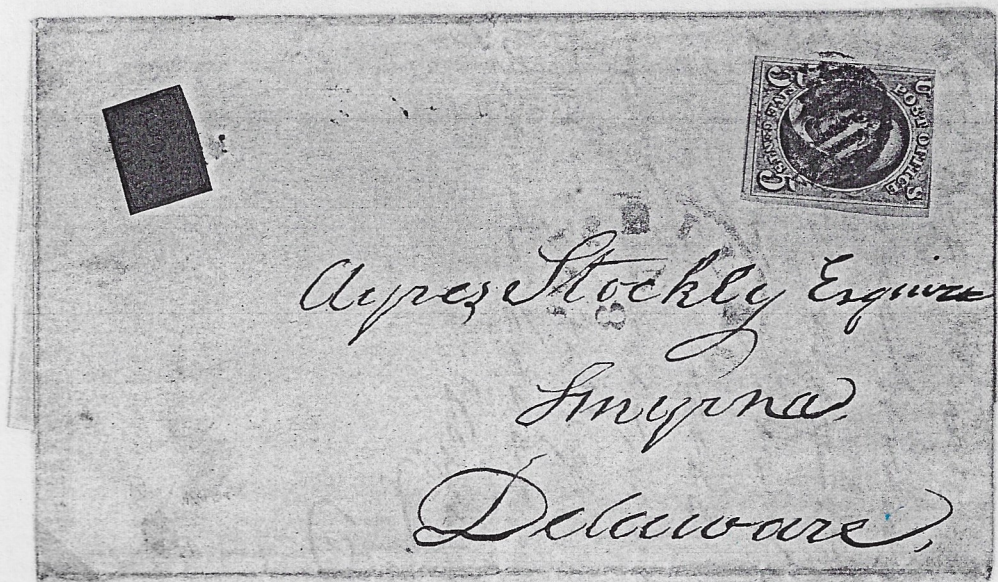 U POST OFFICE S
5 5
Ayres Stockly Esquire
Smyrna
Delaware,